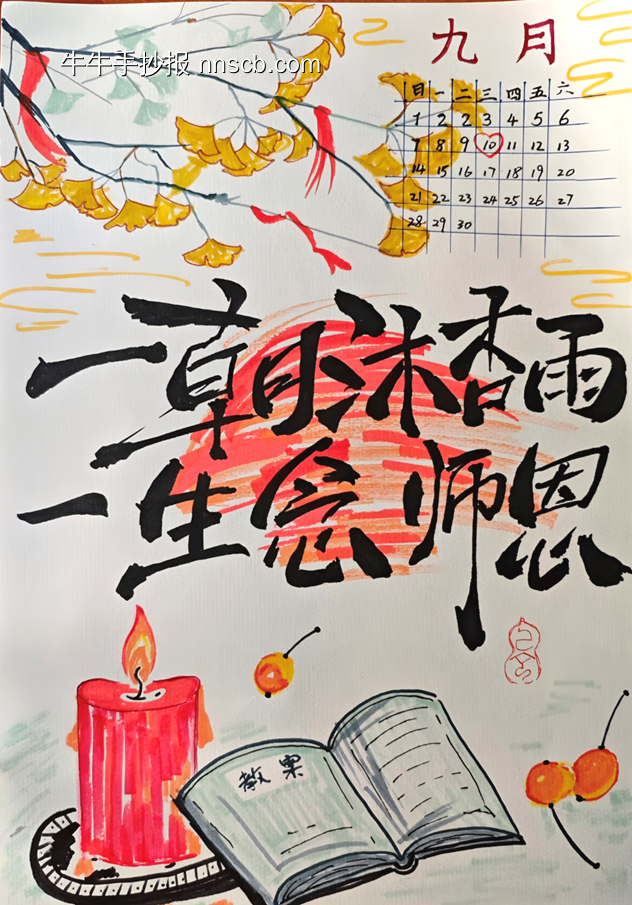 牛牛手抄报 nnscb.com
九月
日 一 二 三 四 五 六
1 2 2 3 4 5 6
7 8 9 10 11 12 13
14 15 16 17 18 19 20
21 22 23 24 25 26 27
28 29 30
一朝沐杏雨
一生念师恩
教案